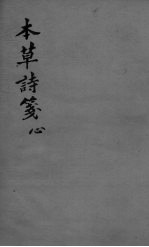 本草詩箋 心